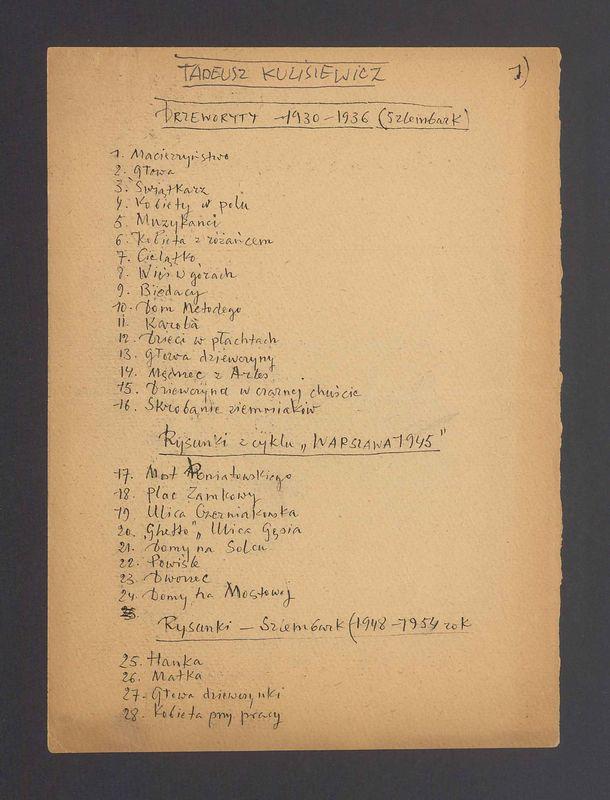 TADEUSZ KULISIEWICZ
1)
DRZEWORYTY - 1930 - 1936 (Szlembark)
1. Macierzyństwo
2. Głowa
3. Świątkarz
4. Kobiety w polu
5. Muzykańci
6. Kobieta z różańcem
7. Cielątko
8. Wieś w górach
9. Biedacy
10. Dom Metodego
11. Karoba
12. Dzieci w płachtach
13. Głowa dziewczyny
14. Mędrzec z Arles
15. Dziewczyna w czarnej chuście
16. Skrobanie ziemniaków
Rysunki z cyklu „WARSZAWA 1945"
17. Most Poniatowskiego
18. Plac Zamkowy
19 Ulica Czerniakowska
20. „Ghetto", Ulica Gęsia
21. Domy na Solcu
22. Powiśle
23. Dworzec
24. Domy na Mostowej
Rysunki - Szlembark (1948 - 1954 rok
25. Hanka
26. Matka
27. Głowa dziewczynki
28. Kobieta przy pracy